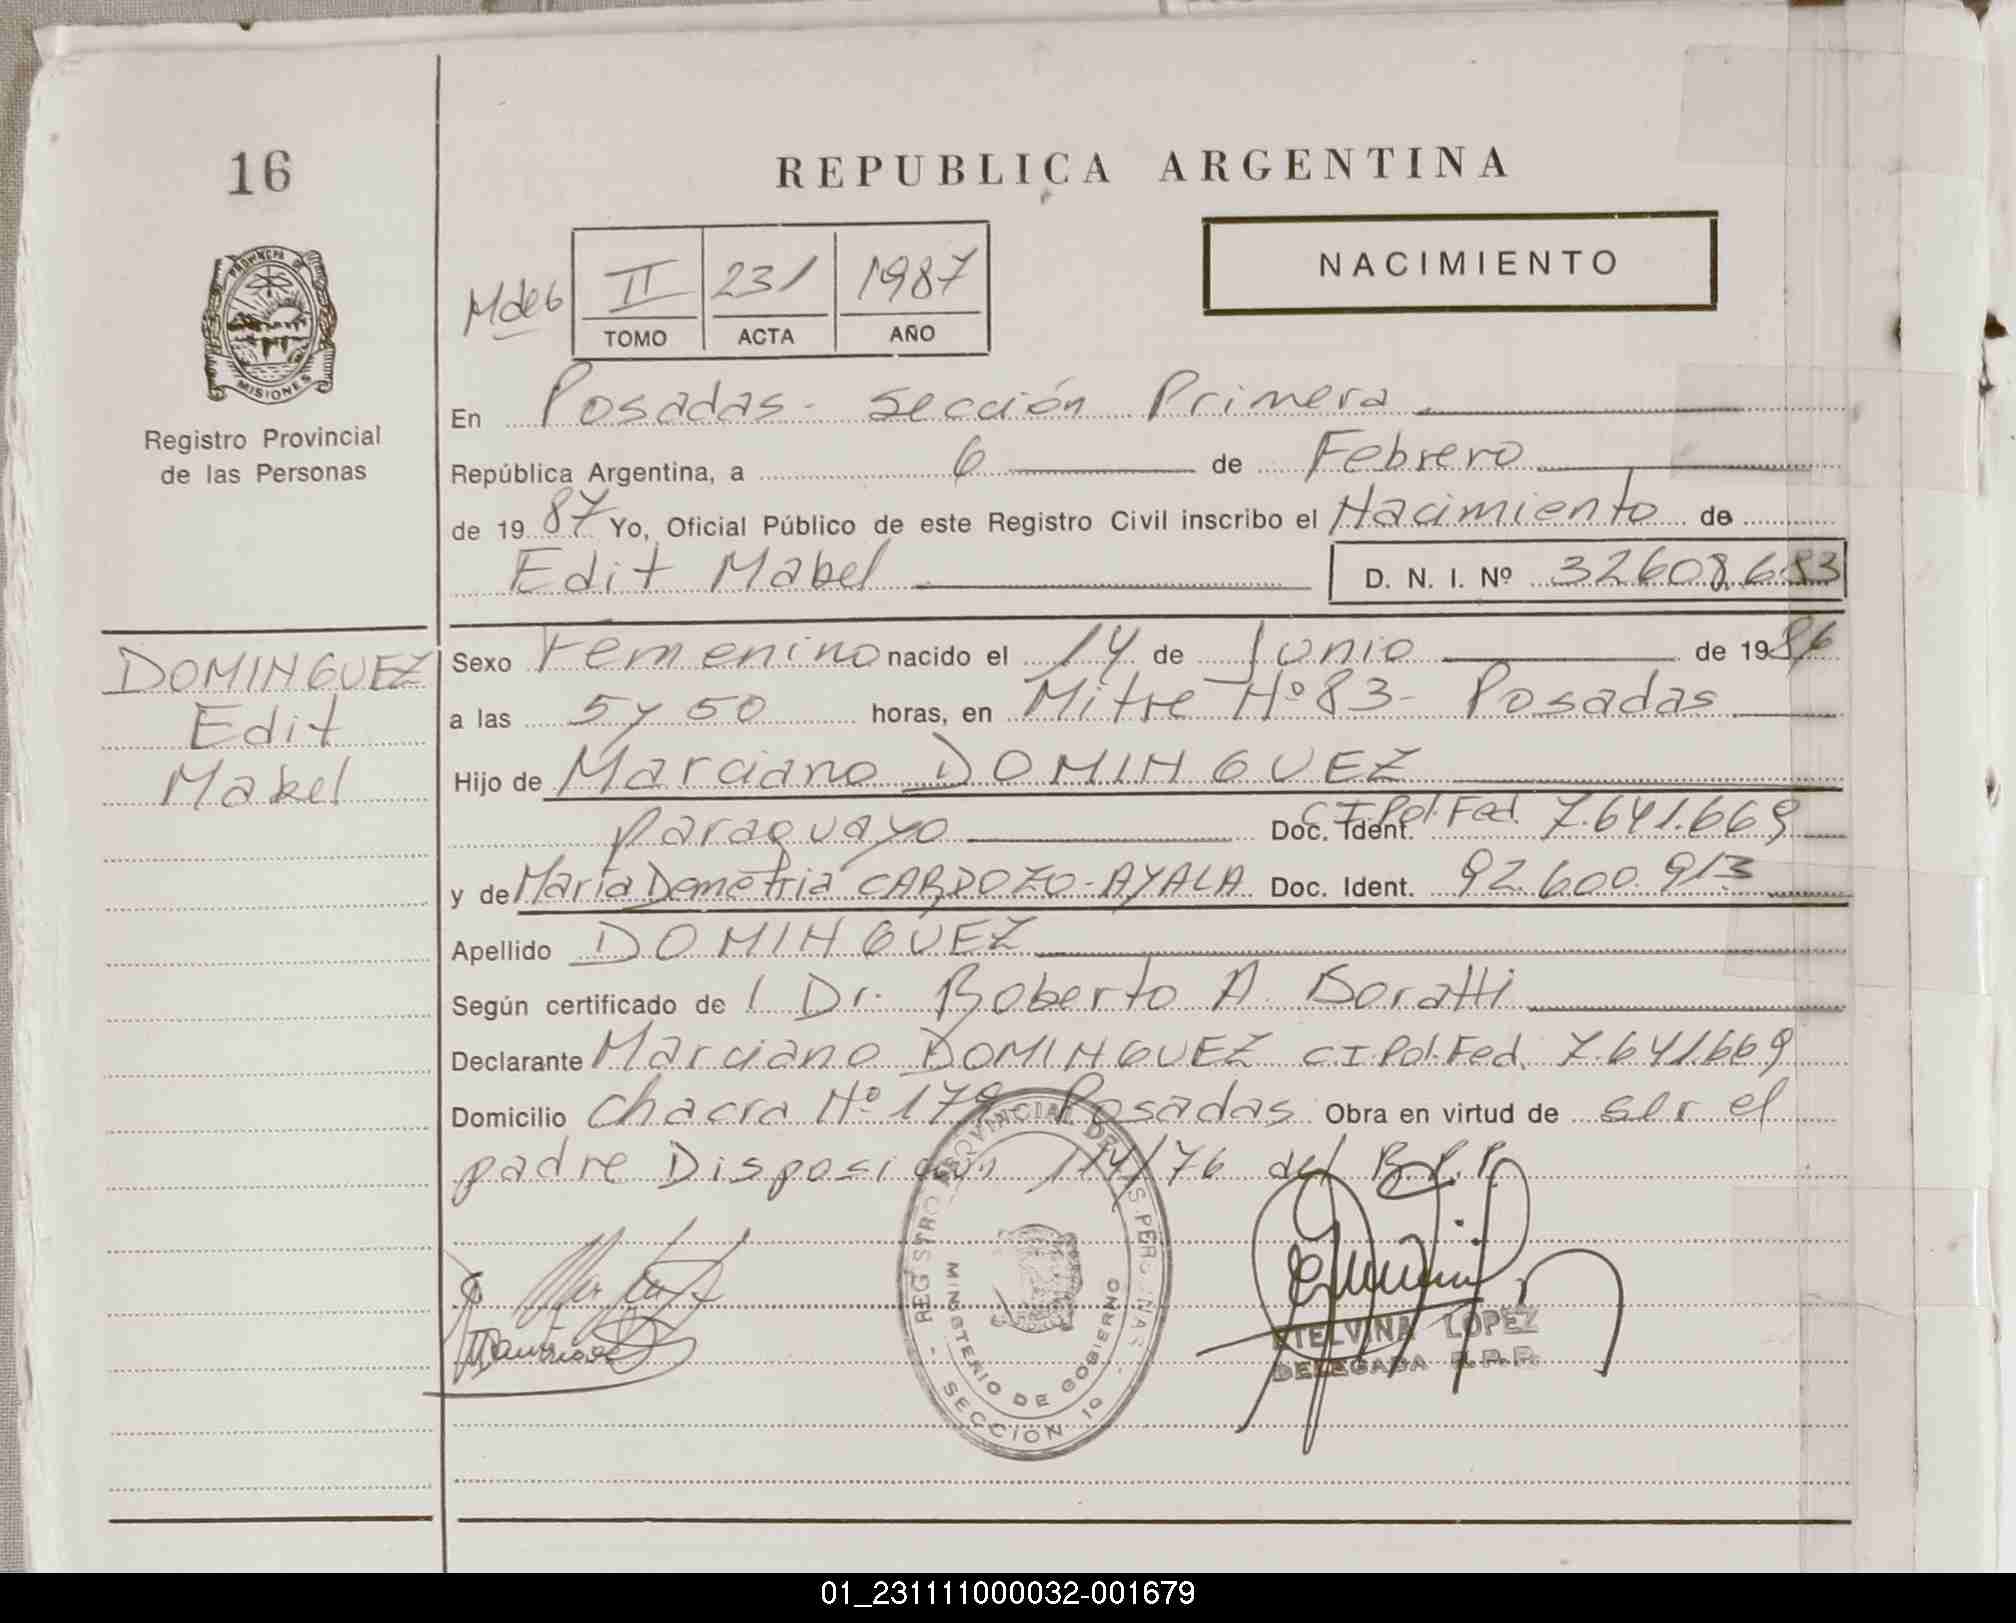 16
REPUBLICA ARGENTINA
NACIMIENTO
Mdeb
II 231 1987
TOMO ACTA AÑO
PROVINCIA DE
MISIONES
Registro Provincial
de las Personas
En Posadas - Sección Primera
República Argentina, a 6 de Febrero
de 1987 Yo, Oficial Público de este Registro Civil inscribo el Nacimiento de
Edit Mabel D. N. I. Nº 32608683
DOMINGUEZ
Edit
Mabel
Sexo Femenino nacido el 14 de Junio de 1986
a las 5 y 50 horas, en Mitre Nº 83 - Posadas
Hijo de Marciano DOMINGUEZ
paraguayo Doc. Ident. C I Pol. Fed. 7.641.669
y de María Demetria CARDOZO - AYALA Doc. Ident. 92.600.913
Apellido DOMINGUEZ
Según certificado de l Dr. Roberto A. Boratti
Declarante Marciano DOMINGUEZ C I Pol. Fed. 7.641.669
Domicilio Chacra Nº 179 Posadas Obra en virtud de ser el
padre Disposición 114/76 del R.P.P.
REGISTRO PROVINCIAL DE LAS PERSONAS
MINISTERIO DE GOBIERNO
SECCION 1º
ETELVINA LOPEZ
DELEGADA R.P.P.
01_231111000032-001679